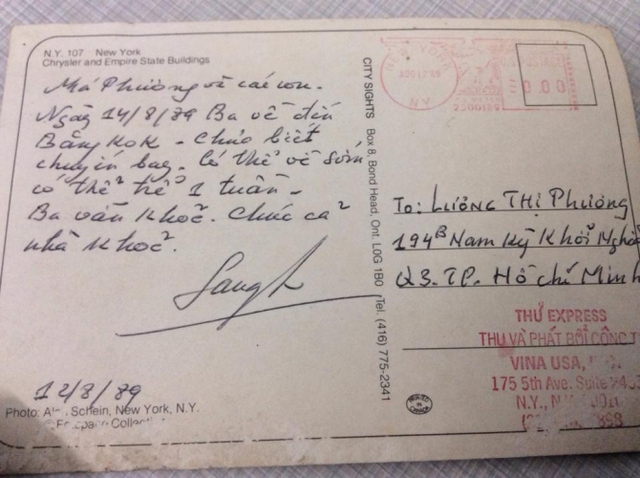 N.Y. 107 New York
Chrysler and Empire State Buildings
Má Phường và các con.
Ngày 14/8/89 Ba về đến
Băng KoK - Chưa biết
chuyến bay. Có thể về sớm
có thể trể 1 tuần -
Ba vẫn Khoẻ. Chúc cả
nhà Khoẻ.
12/8/89
Photo: Schein, New York, N.Y.
CITY SIGHTS Box 8, Bond Head, Ont. L0G 1B0 Tel. (416) 775-2341
NEW YORK
N.Y.
U.S. POSTAGE
0.00
To: LƯƠNG THỊ Phường
194B Nam Kỳ Khởi Nghĩa
Q3. TP. Hồ Chí Minh
THƯ EXPRESS
THU VÀ PHÁT BỞI CÔNG T
VINA USA,
175 5th Ave. Suite
N.Y.,
PRINTED IN CANADA